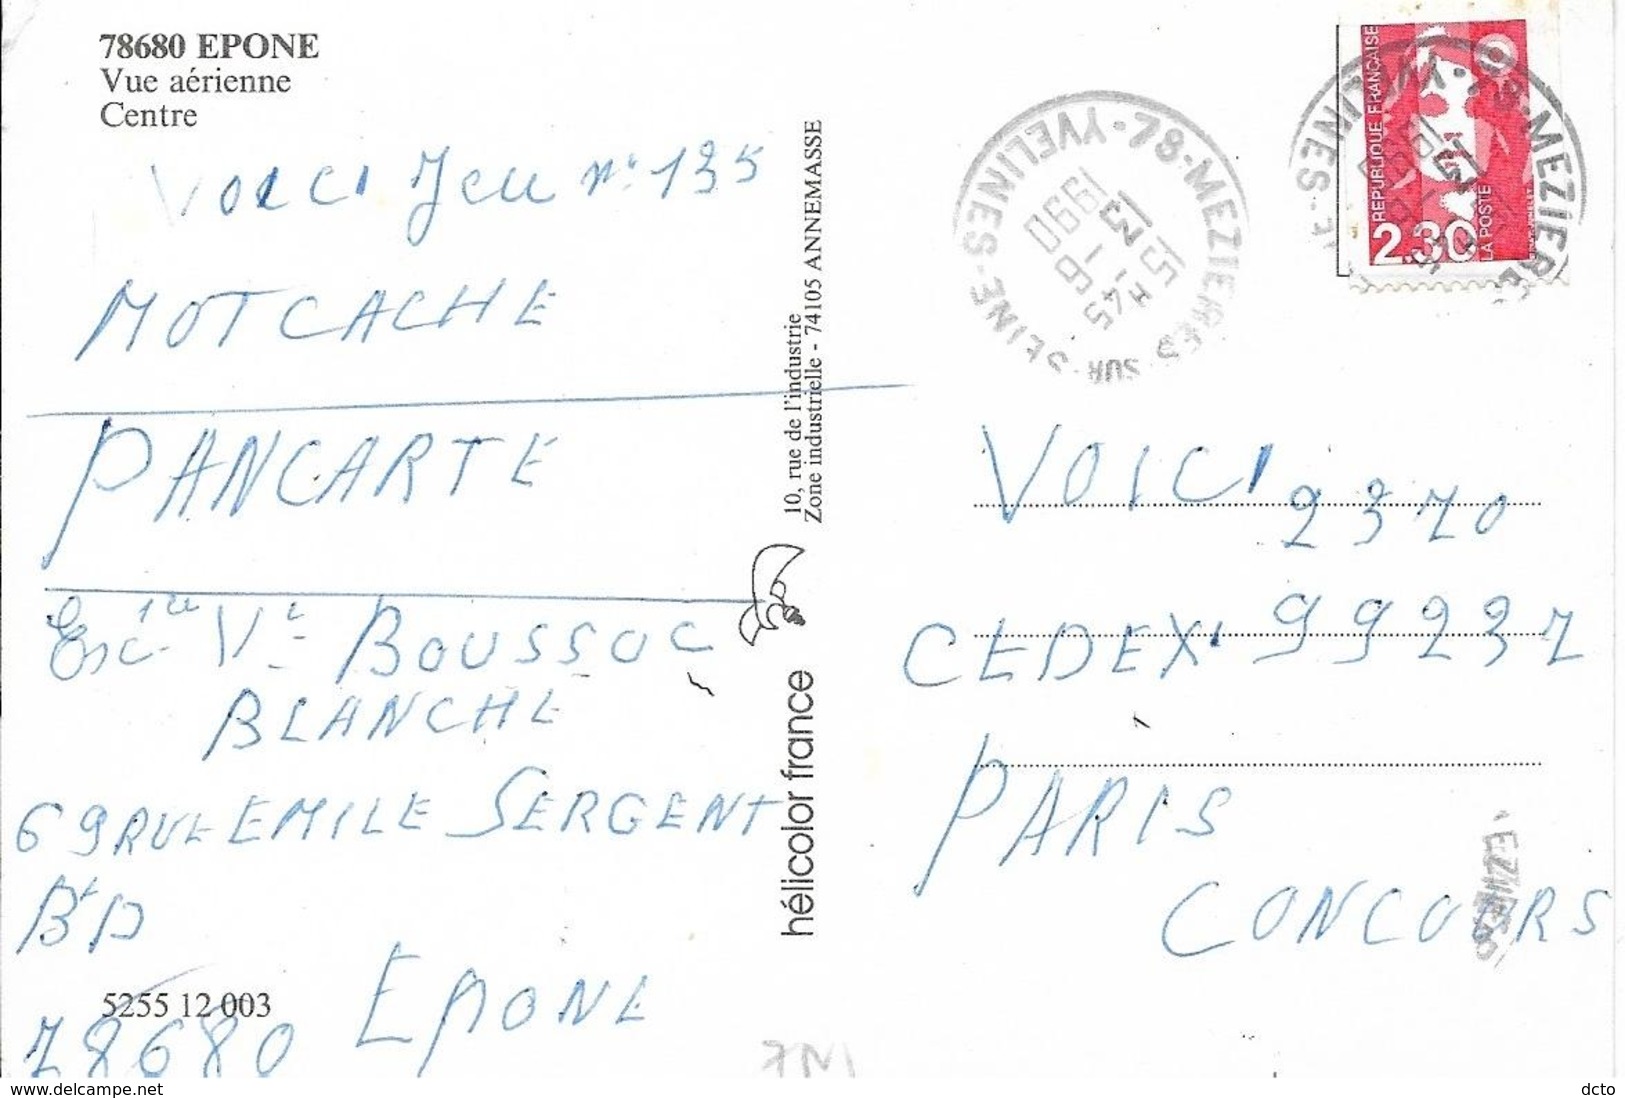 78680 EPONE
Vue aérienne
Centre
VOICI Jeu n° 135
MOTCACHE
PANCARTE
Vᵉ BOUSSOC
BLANCHE
69 RUE EMILE SERGENT
Bᵗ D
5255 12 003
78680 EPONE
10, rue de l'industrie
Zone industrielle - 74105 ANNEMASSE
hélicolor france
78-MEZIERES SUR SEINE-YVELINES
15H45
5-1
1990
REPUBLIQUE FRANÇAISE
2.30
LA POSTE
78-MEZIERES
YVELINES
VOICI 2370
CEDEX 99237
PARIS
CONCOURS
www.delcampe.net
dcto